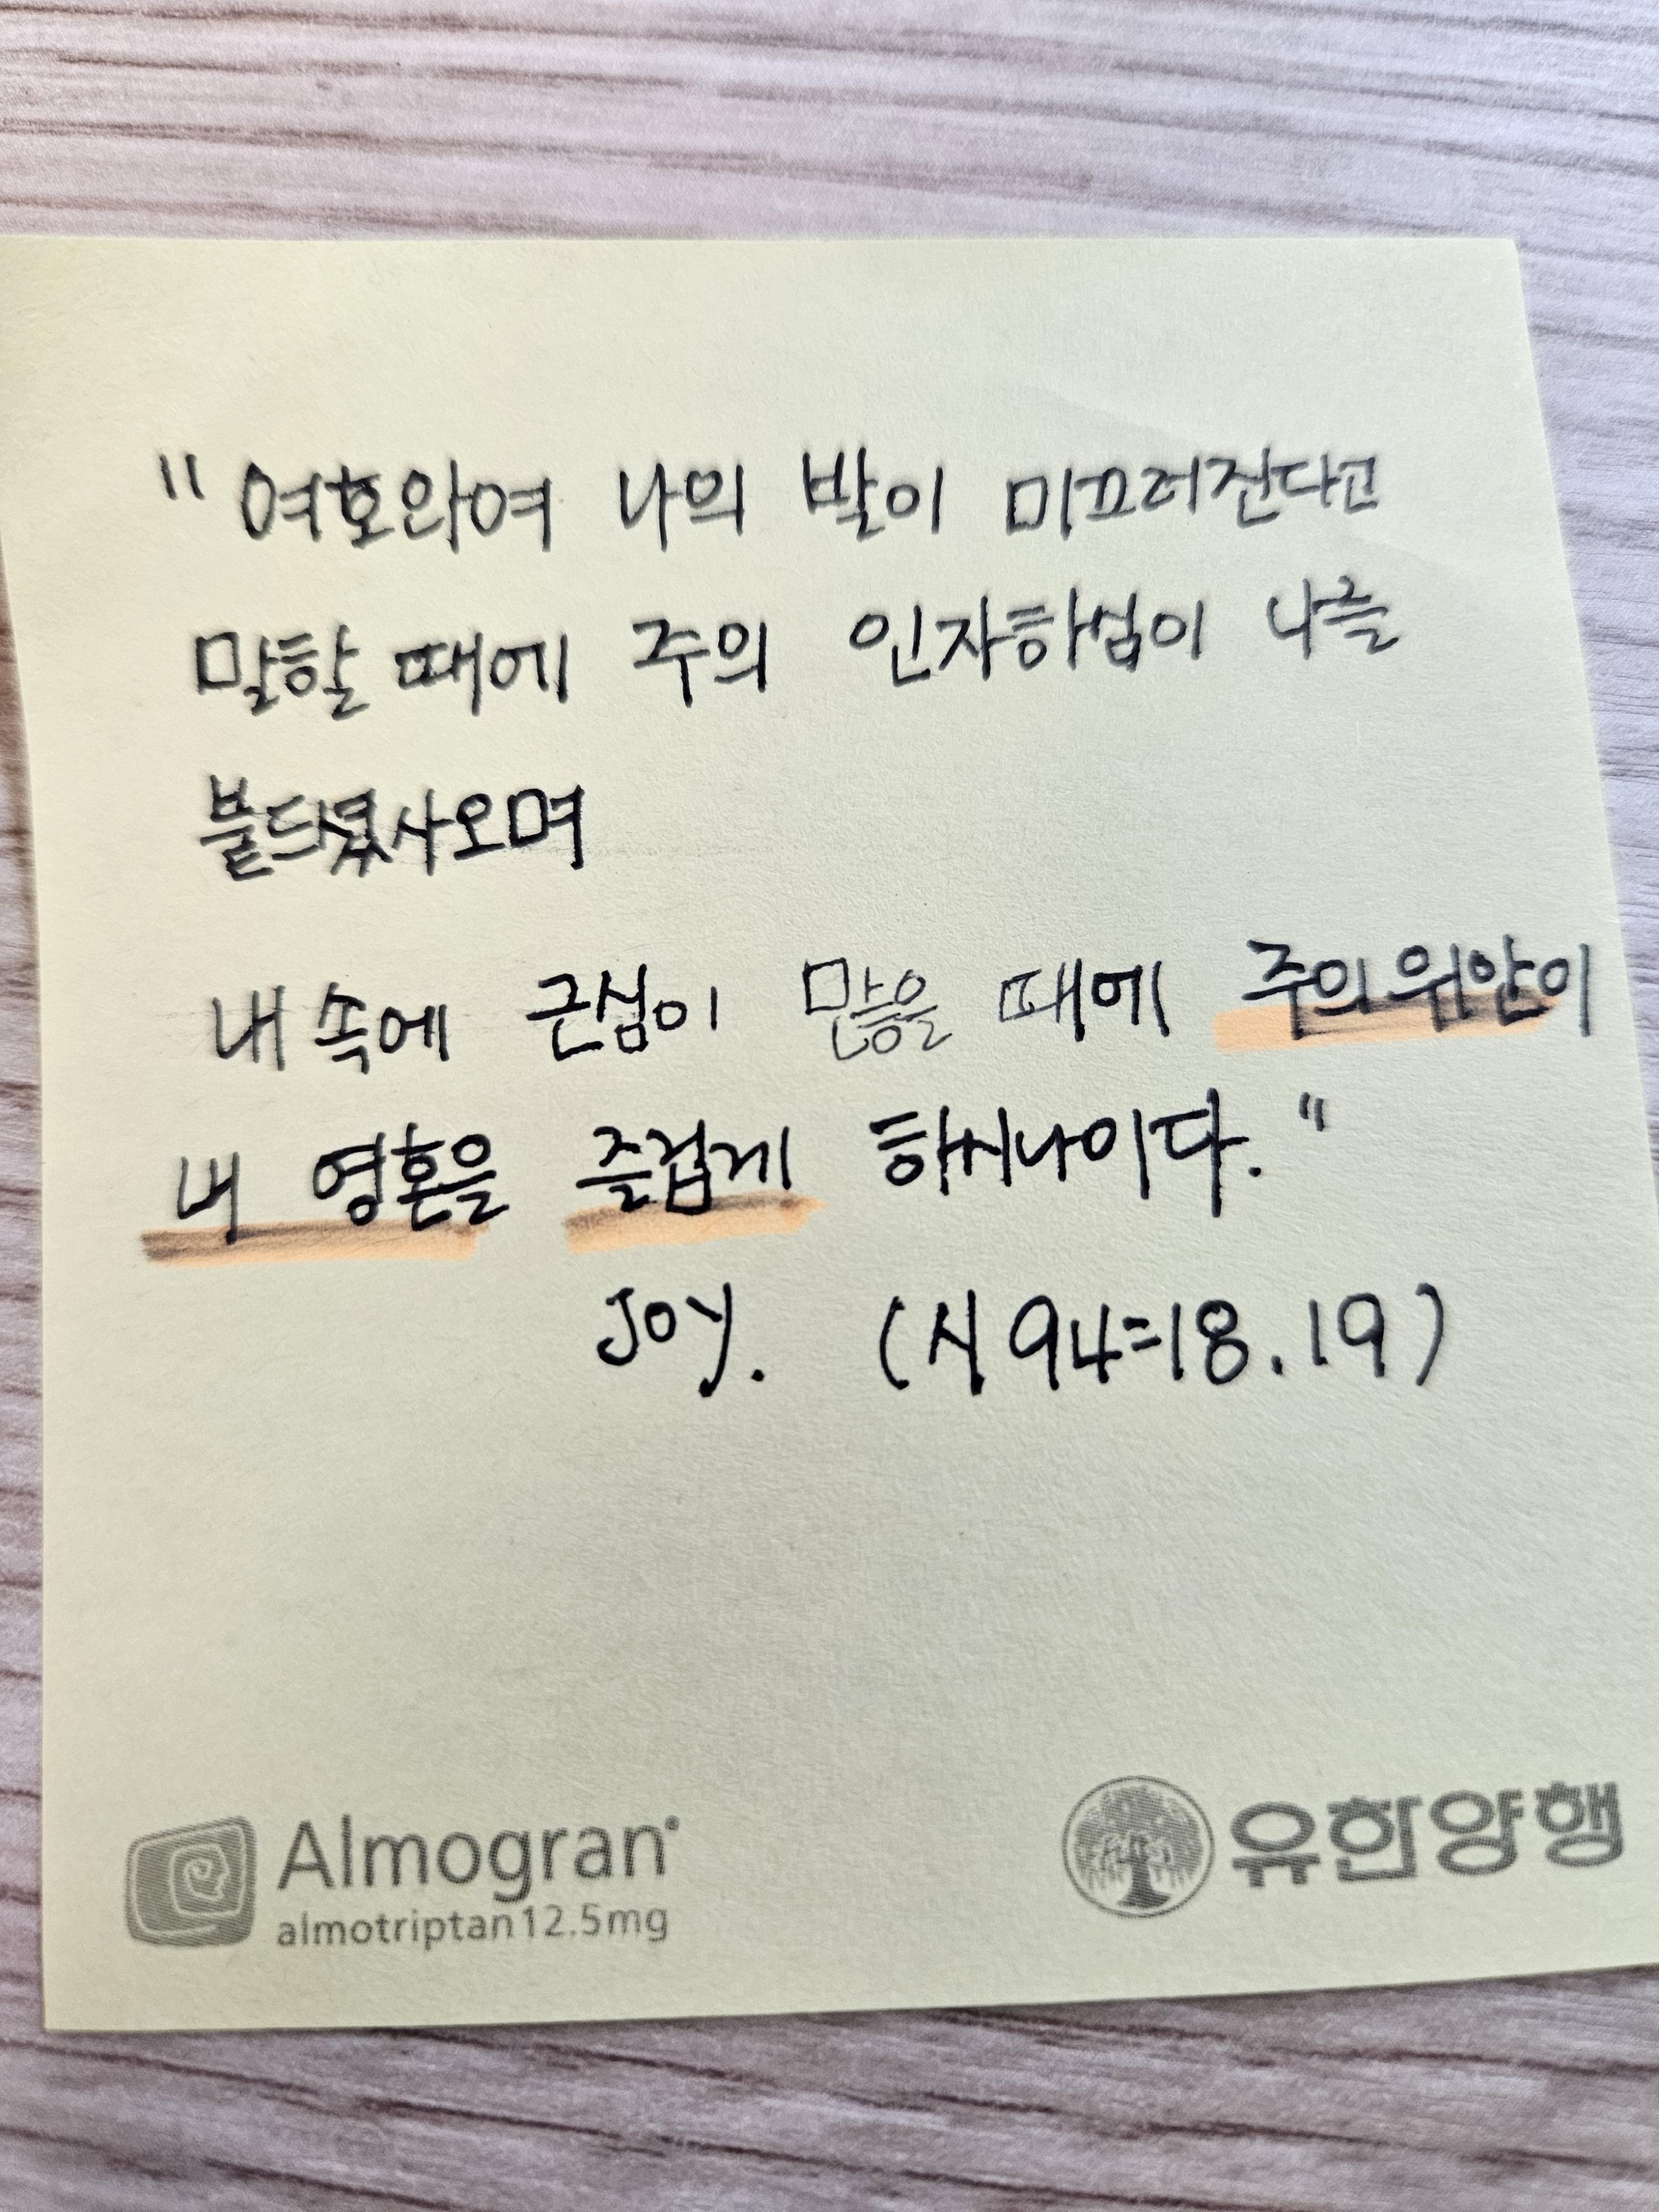 "여호와여 나의 발이 미끄러진다고
말할 때에 주의 인자하심이 나를
붙드셨사오며
내 속에 근심이 많을 때에 주의 위안이
내 영혼을 즐겁게 하시나이다."
Joy. (시 94=18.19)
Almogran®
almotriptan 12.5mg
유한양행